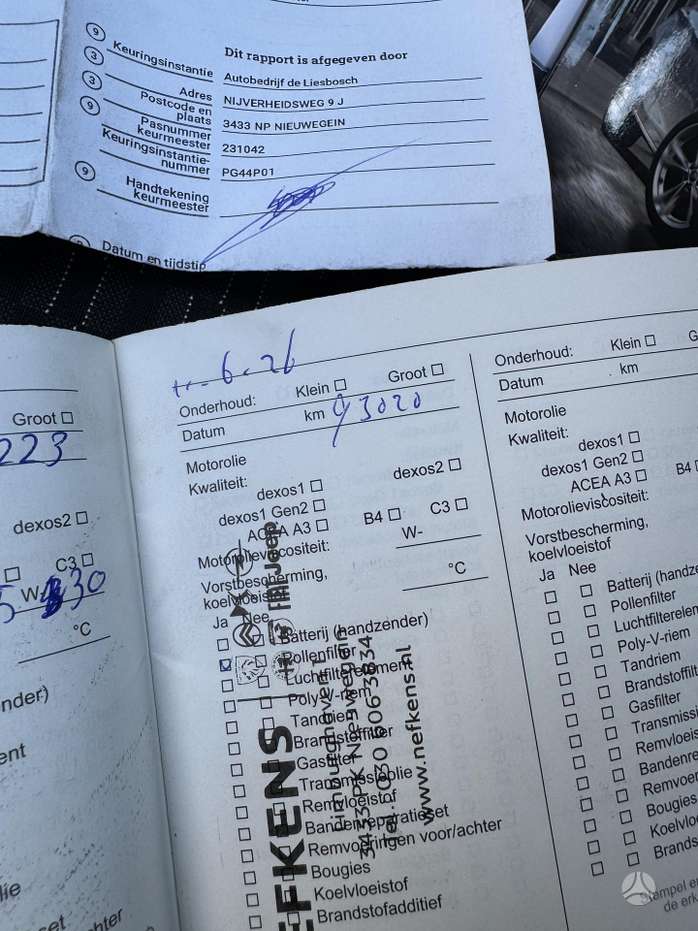 9 Keuringsinstantie
Dit rapport is afgegeven door
Autobedrijf de Liesbosch
3 Adres
NIJVERHEIDSWEG 9 J
3 Postcode en plaats
3433 NP NIEUWEGEIN
9 Pasnummer keurmeester
231042
Keuringsinstantie-nummer
PG44P01
9 Handtekening keurmeester
Datum en tijdstip
Groot
223
dexos2
C3
W- 30
°C
nder)
ent
lie
set
achter
6-26
Onderhoud: Klein Groot
Datum km 93020
Motorolie
Kwaliteit:
dexos1 dexos2
dexos1 Gen2
ACEA A3 B4 C3
Motorolieviscositeit: W-
Vorstbescherming,
koelvloeistof °C
Ja Nee
Batterij (handzender)
Pollenfilter
Luchtfilterelement
Poly-V-riem
Tandriem
Brandstoffilter
Gasfilter
Transmissieolie
Remvloeistof
Bandenreparatieset
Remvoeringen voor/achter
Bougies
Koelvloeistof
Brandstofadditief
Jeep
EFKENS
3433 PK Nieuwegein
Tel.: 030 606 3834
www.nefkens.nl
Onderhoud: Klein G
Datum km
Motorolie
Kwaliteit:
dexos1
dexos1 Gen2
ACEA A3 B4
Motorolieviscositeit:
Vorstbescherming,
koelvloeistof
Ja Nee
Batterij (handze
Pollenfilter
Luchtfilterelem
Poly-V-riem
Tandriem
Brandstoffilt
Gasfilter
Transmissi
Remvloeis
Bandenre
Remvoer
Bougies
Koelvlo
Brands
Stempel en
de erk